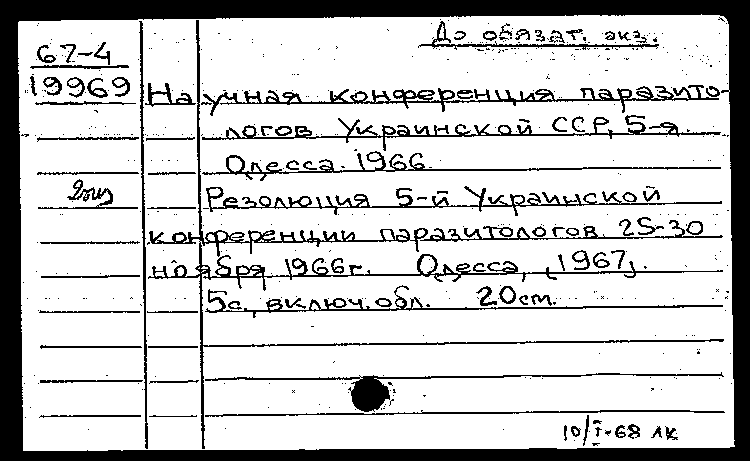 До обязат. экз.
67-4
19969
Научная конференция паразито-
логов Украинской ССР, 5-я.
Одесса. 1966
2экз
Резолюция 5-й Украинской
конференции паразитологов 25-30
ноября 1966г. Одесса, [1967].
5с., включ. обл. 20см.
10/I-68 ЛК